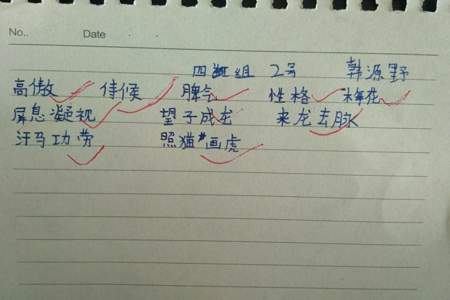 No.. Date
四班组 2号 韩源野
高傲 侍候 脾气 性格 梅花
屏息凝视 望子成龙 来龙去脉
汗马功劳 照猫画虎